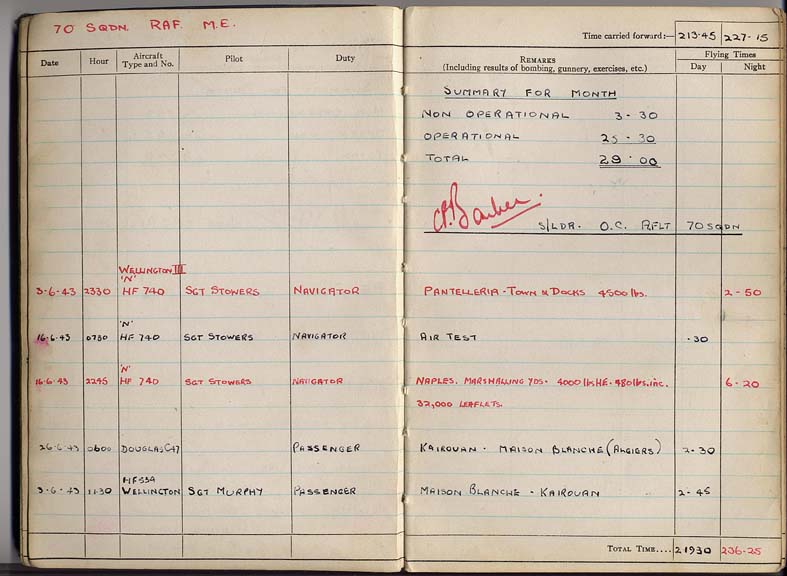 70 SQDN. RAF. M.E.
Time carried forward:— 213·45 227·15
Date Hour Aircraft Type and No. Pilot Duty REMARKS (Including results of bombing, gunnery, exercises, etc.) Flying Times Day Night
SUMMARY FOR MONTH
NON OPERATIONAL 3·30
OPERATIONAL 25·30
TOTAL 29·00
Barker
S/LDR. O.C. RFLT 70 SQDN
WELLINGTON III
'N'
3-6-43 2330 HF 740 SGT STOWERS NAVIGATOR PANTELLERIA - TOWN & DOCKS 4500 lbs. 2-50
'N'
16.6.43 0730 HF 740 SGT STOWERS NAVIGATOR AIR TEST ·30
'N'
16.6.43 2245 HF 740 SGT STOWERS NAVIGATOR NAPLES. MARSHALLING YDS. 4000 lbs HE. 480 lbs. inc. 6-20
32,000 LEAFLETS.
26-6-43 0600 DOUGLAS C47 PASSENGER KAIROUAN - MAISON BLANCHE (ALGIERS) 2-30
HF
3-6-43 11.30 WELLINGTON SGT MURPHY PASSENGER MAISON BLANCHE - KAIROUAN 2-45
TOTAL TIME.... 219 30 236-25